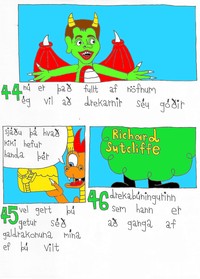 44 nú er það fullt af höfnum
ég vil að drekarnir séu góðir
sjáðu þú hvað
kiki hefur
handa þér
45 vel gert þú
getur séð
galdrakonuna mína
ef þú vilt
Richard
Sutcliffe
46 drekabúningurinn
sem hann er
að ganga af